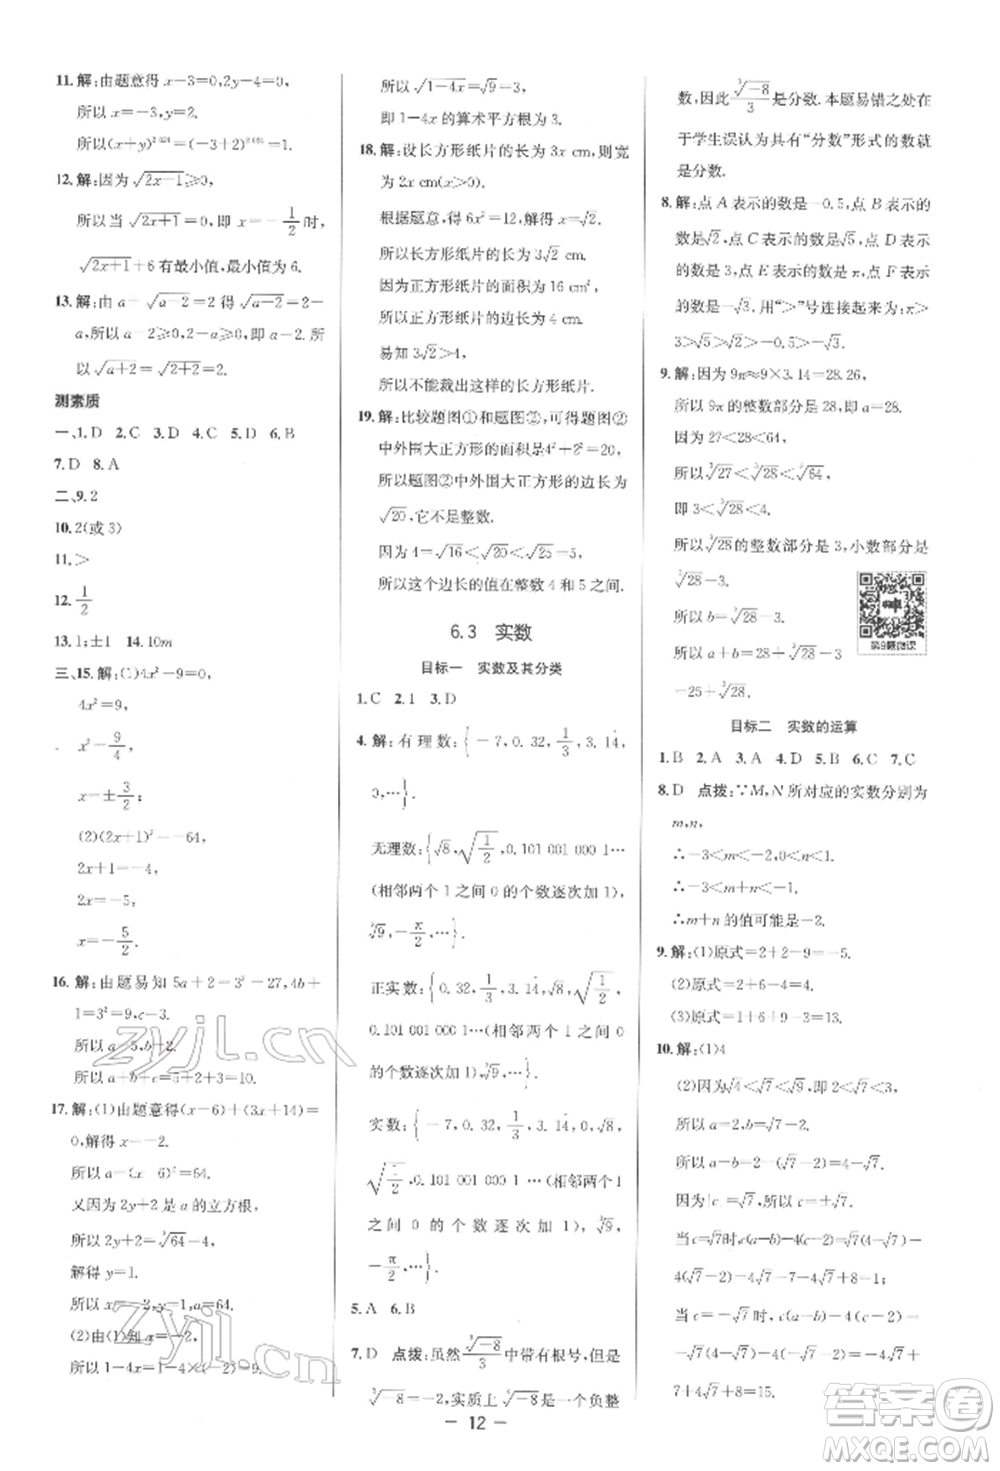 11. 解:由题意得 x-3=0,2y-4=0,
所以 x=-3,y=2.
所以(x+y)²⁰²⁴=(-3+2)²⁰²⁴=1.
12. 解:因为 √(2x-1)≥0,
所以当 √(2x+1)=0,即 x=-1/2时,
√(2x+1)+6有最小值,最小值为 6.
13. 解:由 a-√(a-2)=2 得 √(a-2)=2-
a,所以 a-2≥0,2-a≥0,即 a-2.所
以 √(a+2)=√(2+2)=2.
测素质
一、1. D 2. C 3. C 4. C 5. D 6. B
7. D 8. A
二、9. 2
10. 2(或 3)
11. >
12. 1/2
13. 1;±1 14. 10m
三、15. 解:(1)4x²-9=0,
4x²=9,
x²-9/4,
x-±3/2;
(2)(2x+1)³--64,
2x+1=-4,
2x=-5,
x=-5/2.
16. 解:由题易知 5a+2=3³-27,4b+
1=3²=9,c-3.
所以 a=5,b=2.
所以 a+b+c=5+2+3=10.
17. 解:(1)由题意得(x-6)+(3x+14)=
0,解得 x=-2.
所以 a=(x-6)²=64.
又因为 2y+2 是 a 的立方根,
所以 2y+2=∛64-4.
解得 y=1.
所以 x=-2,y=1,a=64.
(2)由(1)知 x=-2,
所以 1-4x=1-4×(-2)=9.
所以 √(1-4x)=√9-3.
即 1-4x 的算术平方根为 3.
18. 解:设长方形纸片的长为 3x cm,则宽
为 2x cm(x>0).
根据题意,得 6x²=12,解得 x=√2.
所以长方形纸片的长为 3√2 cm.
因为正方形纸片的面积为 16 cm²,
所以正方形纸片的边长为 4 cm.
易知 3√2>4,
所以不能裁出这样的长方形纸片.
19. 解:比较题图①和题图②,可得题图②
中外围大正方形的面积=4²+2²=20,
所以题图②中外围大正方形的边长为
√20,它不是整数.
因为 4=√16<√20<√25=5,
所以这个边长的值在整数 4 和 5 之间.
6.3 实数
目标一 实数及其分类
1. C 2. 1 3. D
4. 解:有理数:{-7,0.32,1/3,3.14,
0,…};
无理数:{√8,√(1/2),0.101 001 000 1…
(相邻两个 1 之间 0 的个数逐次加 1),
∛9,-π/2,…};
正实数:{0.32,1/3,3.14,√8,√(1/2),
0.101 001 000 1…(相邻两个 1 之间 0
的个数逐次加 1),∛9,…};
实数:{-7,0.32,1/3,3.14,0,√8,
√(1/2),0.101 001 000 1…(相邻两个 1
之间 0 的个数逐次加 1),∛9,
-π/2,…}.
5. A 6. B
7. D 点拨:虽然 ∛-8/3 中带有根号,但是
∛-8=-2,实质上 ∛-8是一个负整
数,因此 ∛-8/3 是分数.本题易错之处在
于学生误认为具有“分数”形式的数就
是分数.
8. 解:点 A 表示的数是-0.5,点 B 表示的
数是√2,点 C 表示的数是√5,点 D 表示
的数是 3,点 E 表示的数是 π,点 F 表示
的数是-√3.用“>”号连接起来为:π>
3>√5>√2>-0.5>-√3.
9. 解:因为 9π≈9×3.14=28.26,
所以 9π 的整数部分是 28,即 a=28.
因为 27<28<64,
所以 ∛27<∛28<∛64,
即 3<∛28<4.
所以 ∛28的整数部分是 3,小数部分是
∛28-3.
所以 b=∛28-3.
所以 a+b=28+∛28-3
-25+∛28.
第9题微课
目标二 实数的运算
1. B 2. A 3. A 4. D 5. B 6. C 7. C
8. D 点拨:∵M,N 所对应的实数分别为
m,n,
∴-3<m<-2<0<n<1.
∴-3<m+n<-1.
∴m+n 的值可能是-2.
9. 解:(1)原式=2+2-9=-5.
(2)原式=2+6-4=4.
(3)原式=1+6+9=16.
10. 解:(1)4
(2)因为√4<√7<√9,即 2<√7<3,
所以√7的整数部分为 2,
所以 a=2,b=√7-2.
所以 a-b=2-(√7-2)=4-√7.
因为|c|=√7,所以 c=±√7.
当 c=√7时,c(a-b)-4(c-2)=√7×
4(√7-2)=4√7-7-4√7+8=1;
当 c=-√7时,c(a-b)-4(c-2)=
-√7(4-√7)-4(-√7-2)=-4√7+7
+4√7+8=15.
— 12 —
zyjl.cn
zyjl.cn
答案圈
MXQE.COM